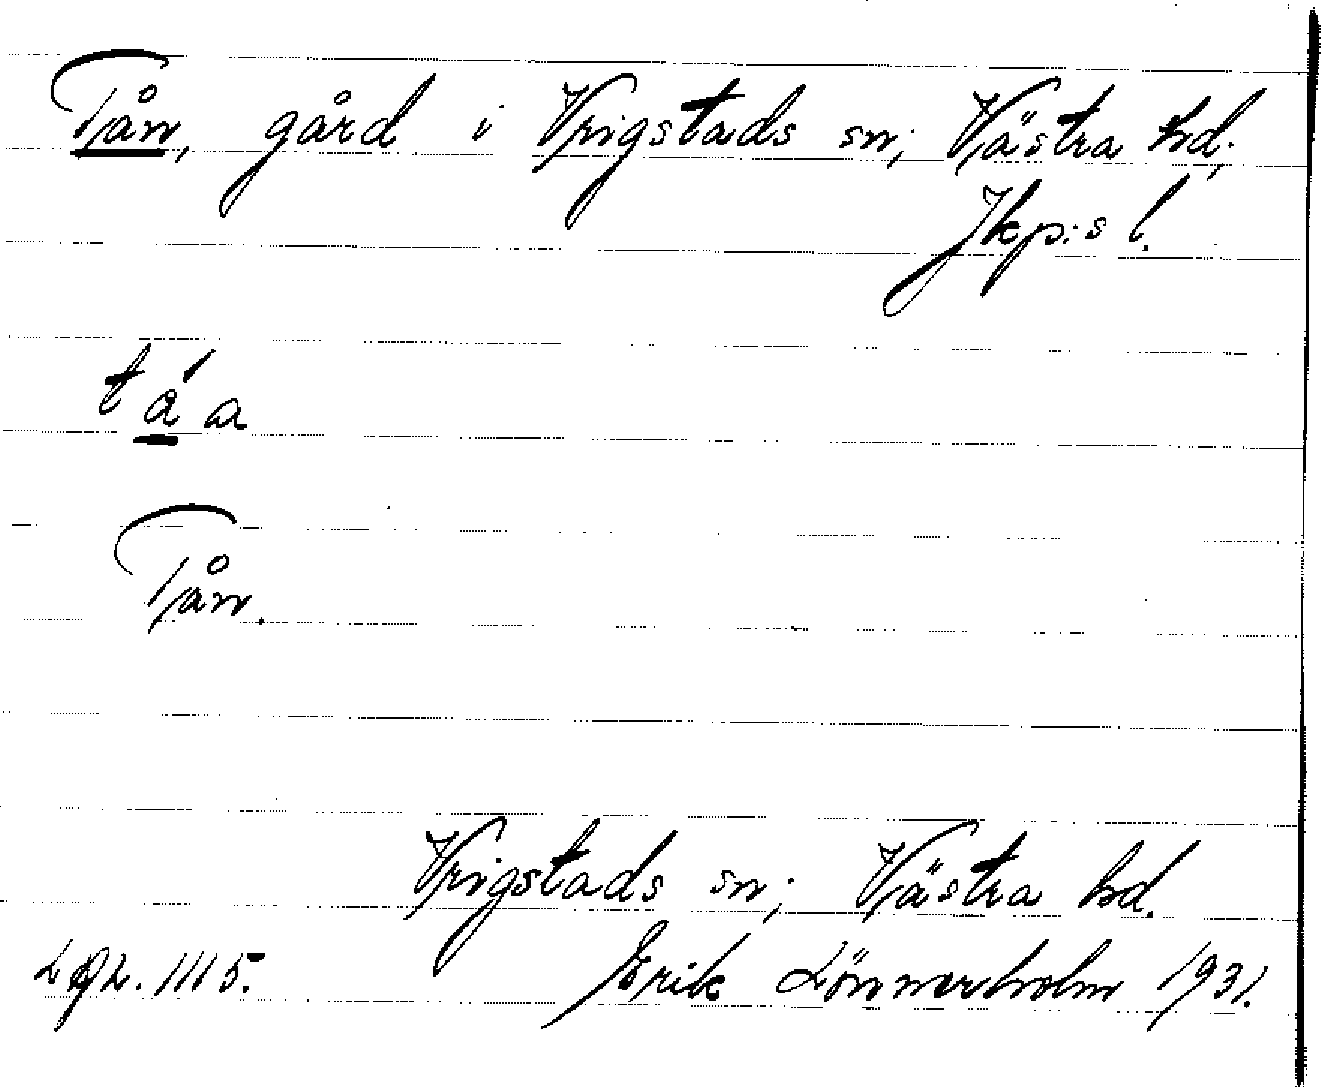 Tån, gård i Vrigstads sn; Västra hd;
Jkp:s l.
tá̊a
Tån.
Vrigstads sn; Västra hd.
1115. Erik Lönnerholm 1931.